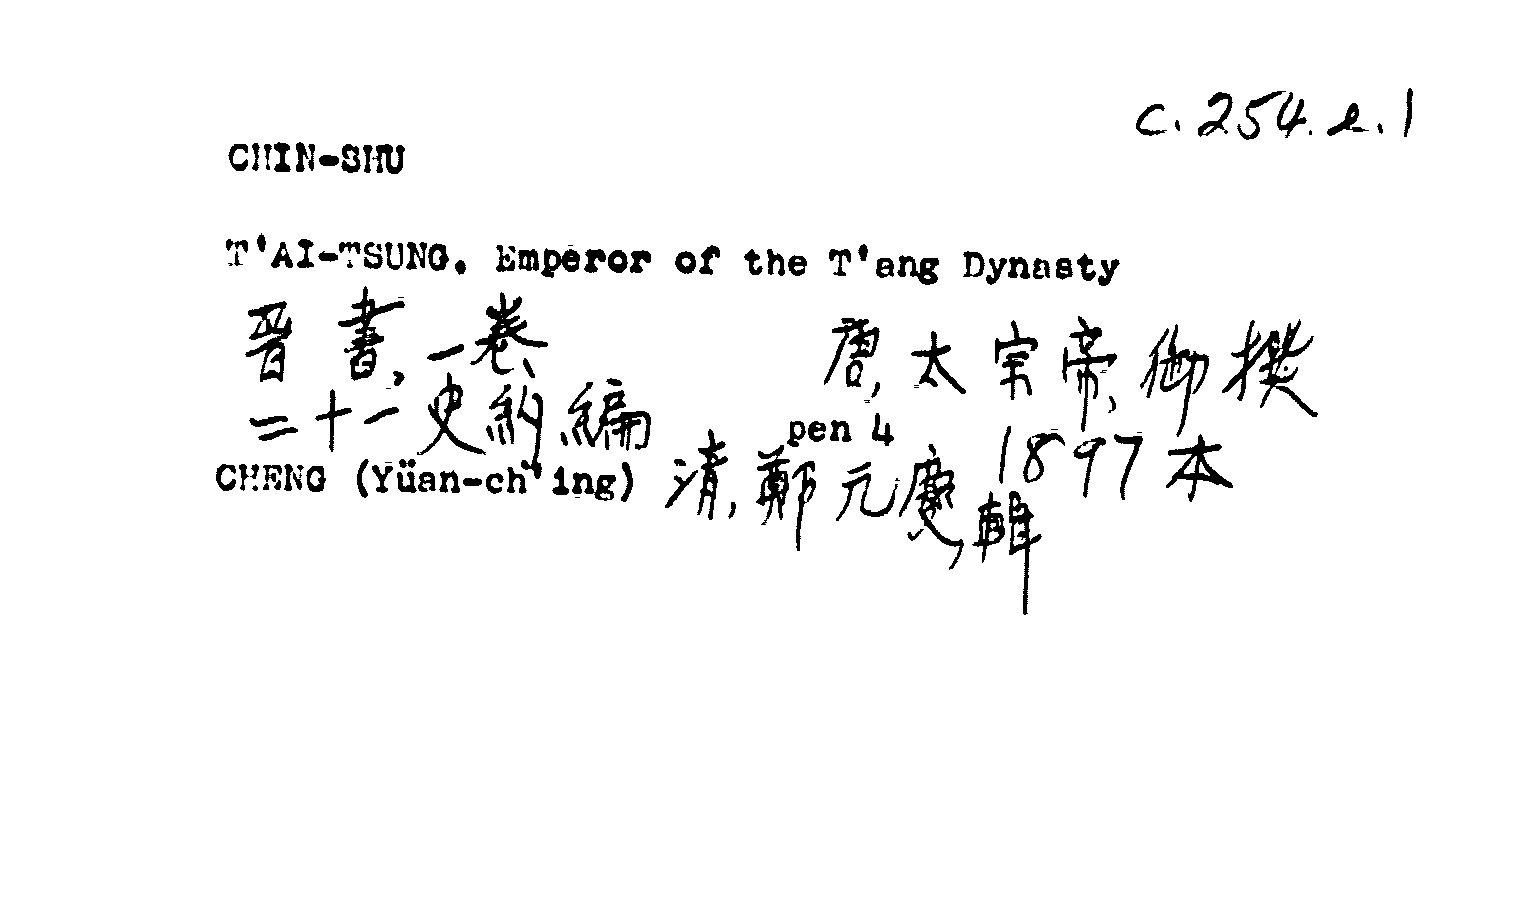 c.254.e.1
CHIN-SHU
T'AI-TSUNG. Emperor of the T'ang Dynasty
晉書,一卷 唐,太宗帝,御撰
二十一史約編 pen 4
CHENG (Yüan-ch'ing) 清,鄭元慶,輯 1897本